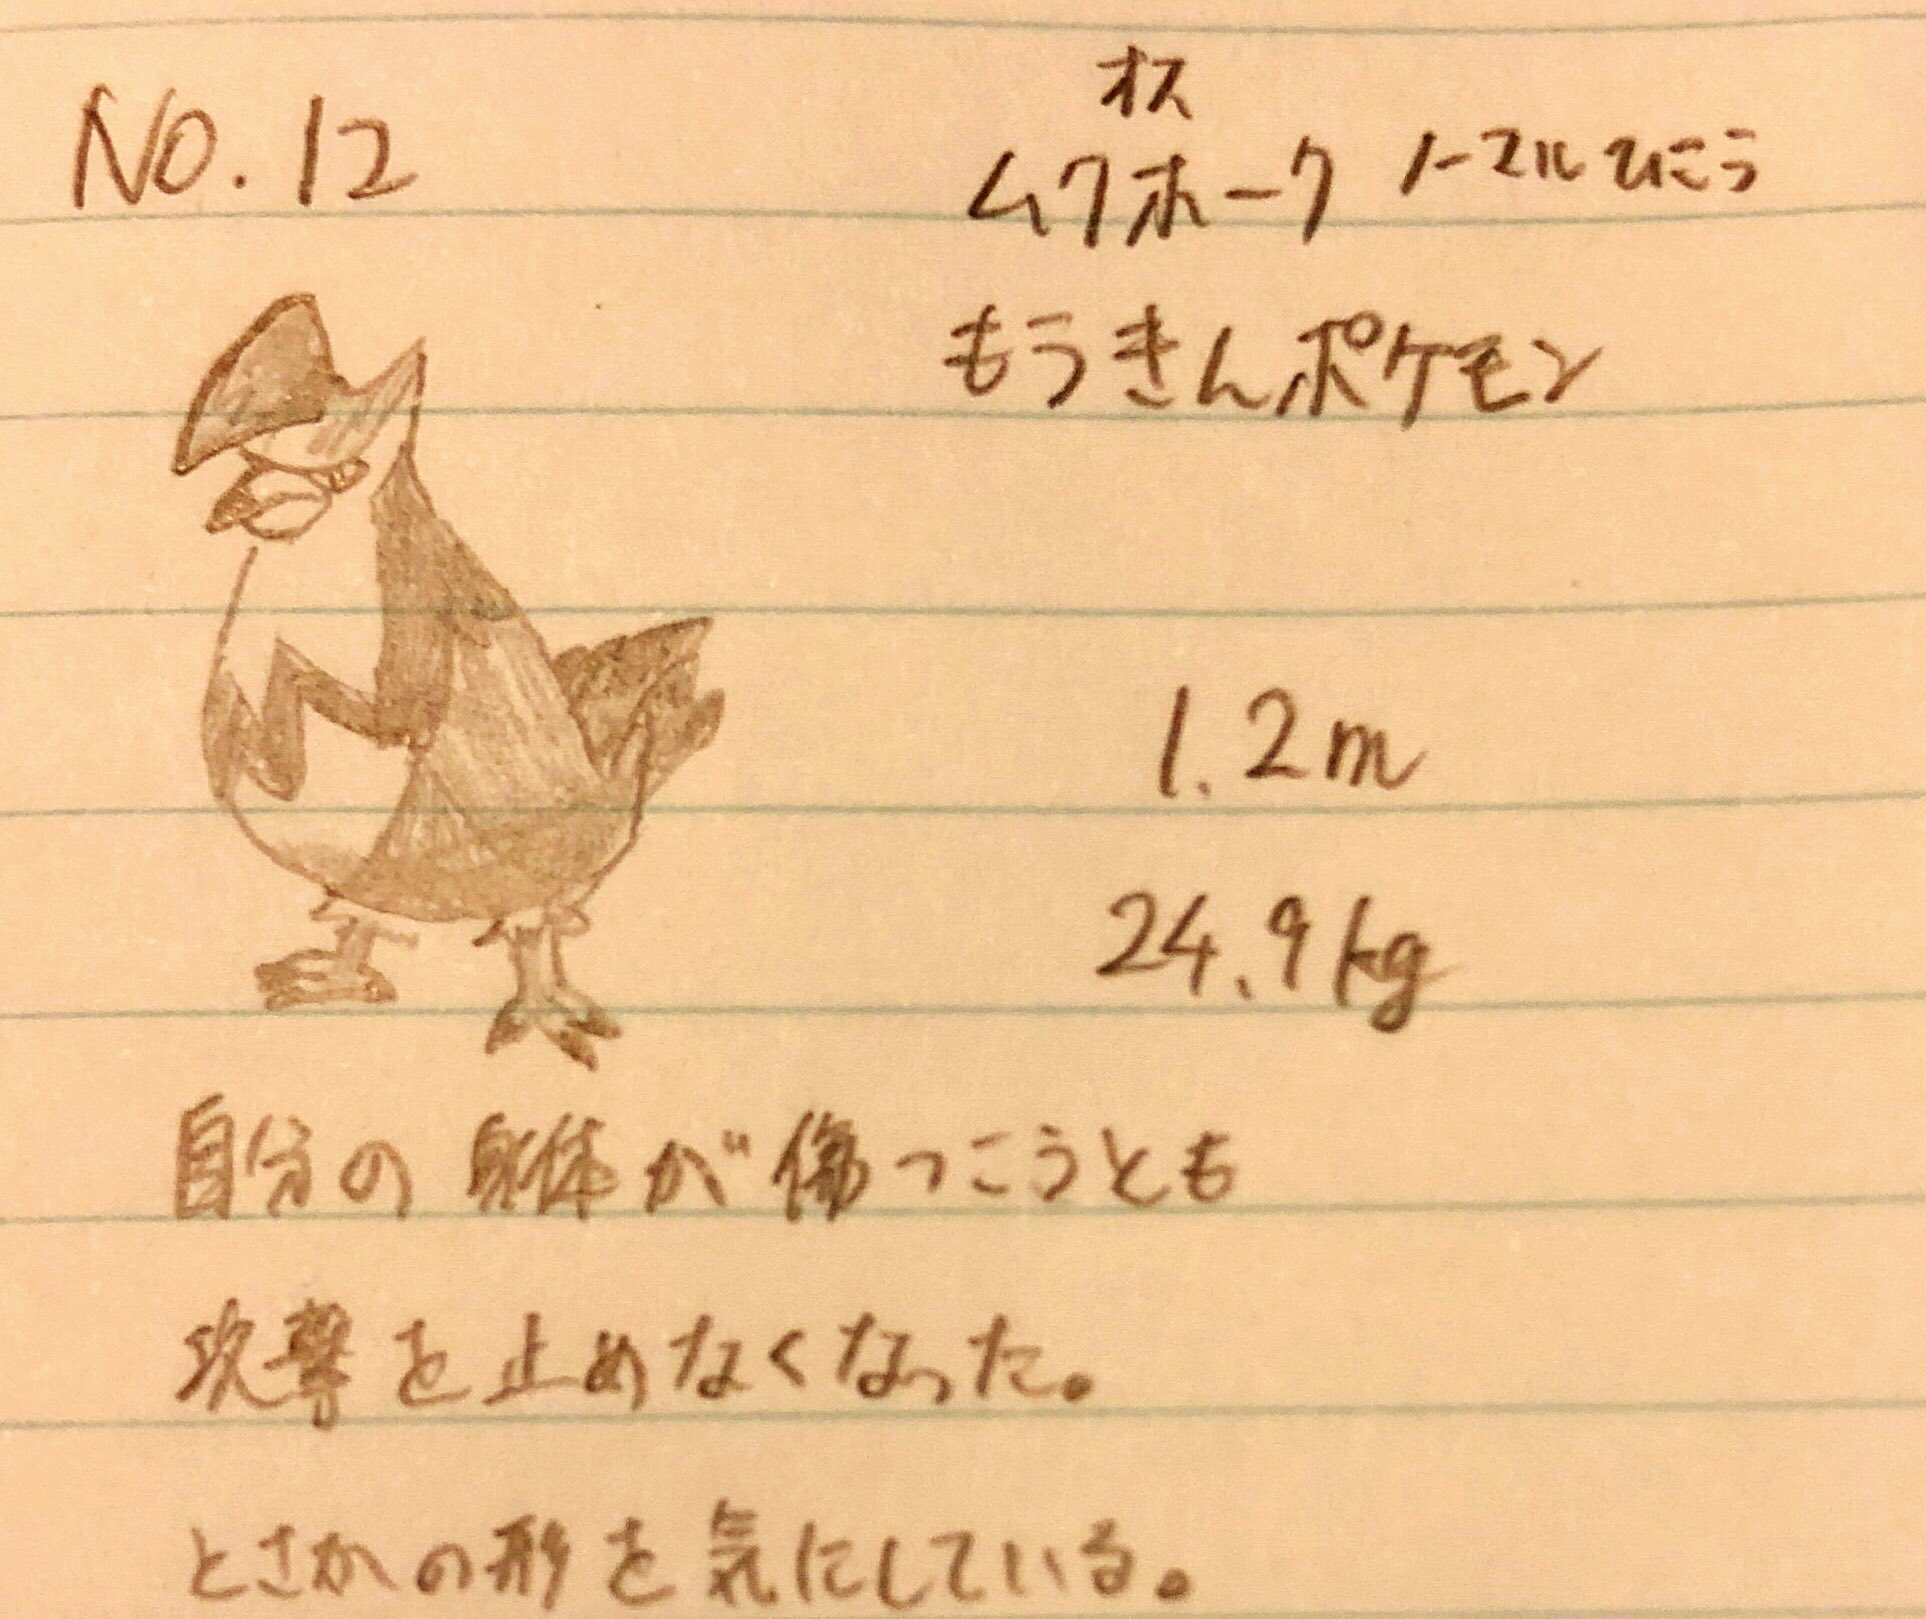 No.12
オス
ムクホーク ノーマル ひこう
もうきんポケモン
1.2m
24.9kg
自分の身体が傷つこうとも
攻撃を止めなくなった。
とさかの形を気にしている。